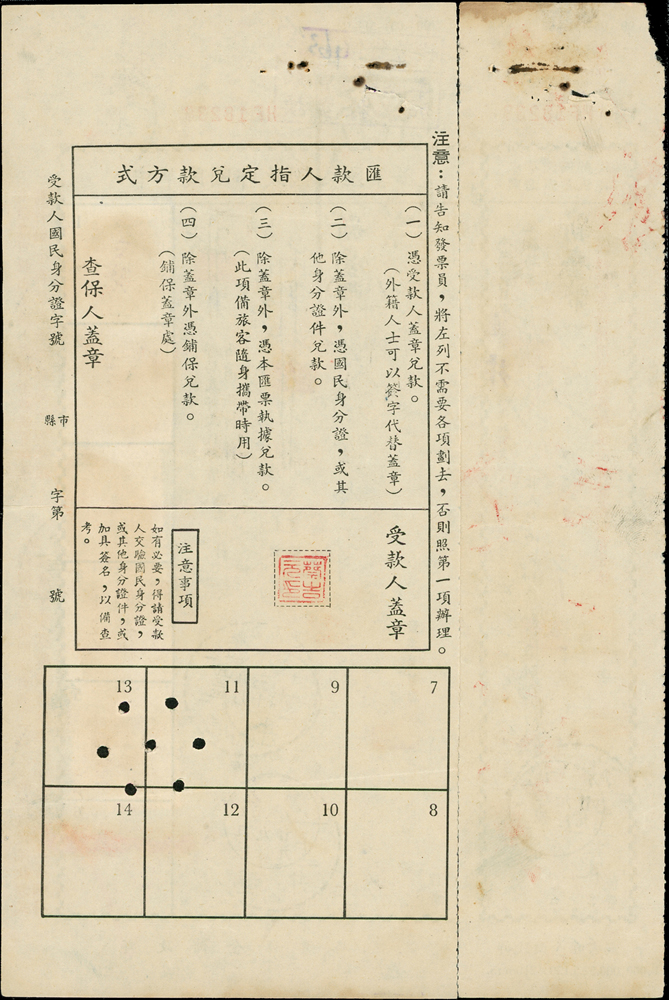 注意：請告知發票員，將左列不需要各項劃去，否則照第一項辦理。
匯款人指定兌款方式
（一）憑受款人蓋章兌款。
（外籍人士可以簽字代替蓋章）
（二）除蓋章外，憑國民身分證，或其
他身分證件兌款。
（三）除蓋章外，憑本匯票執據兌款。
（此項備旅客隨身攜帶時用）
（四）除蓋章外憑鋪保兌款。
（鋪保蓋章處）
查保人蓋章
受款人蓋章
注意事項
如有必要，得請受款
人交驗國民身分證，
或其他身分證件，或
加具簽名，以備查
考。
受款人國民身分證字號
縣市
字第
號
13
11
9
7
14
12
10
8